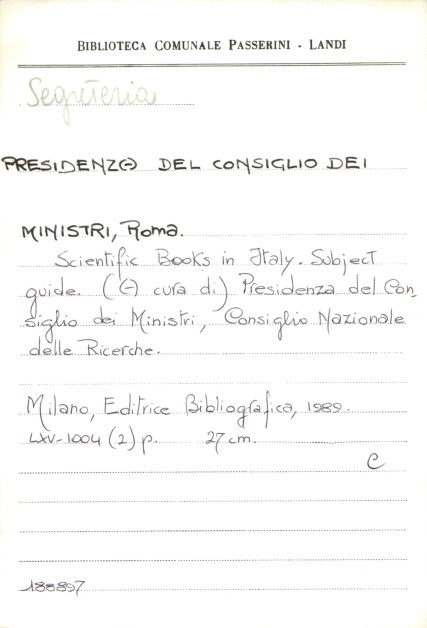 BIBLIOTECA COMUNALE PASSERINI - LANDI
Segreteria
PRESIDENZA DEL CONSIGLIO DEI
MINISTRI, Roma.
Scientific Books in Italy. Subject
guide. (A cura di) Presidenza del Con_
siglio dei Ministri, Consiglio Nazionale
delle Ricerche.
Milano, Editrice Bibliografica, 1989.
LXV-1004 (2) p. 27 cm.
C
188897